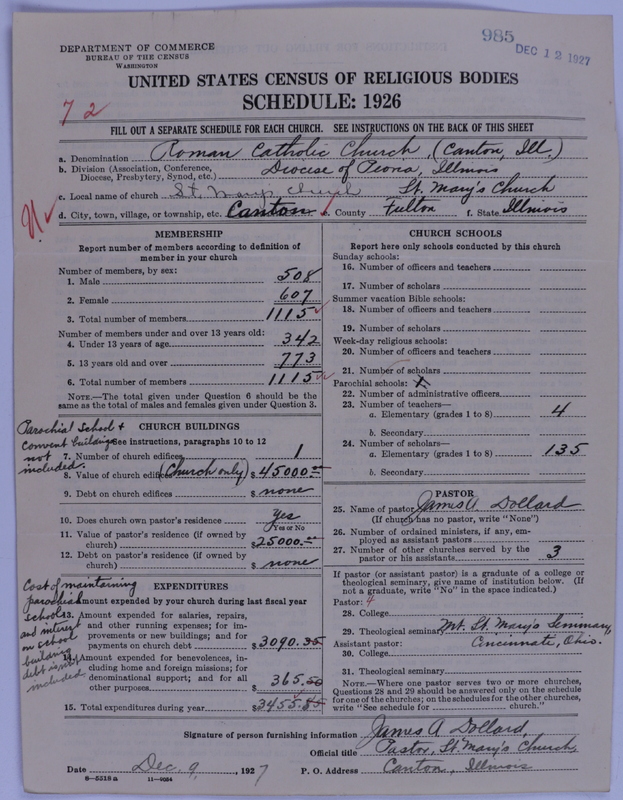 985
DEC 12 1927
DEPARTMENT OF COMMERCE
BUREAU OF THE CENSUS
WASHINGTON
UNITED STATES CENSUS OF RELIGIOUS BODIES
SCHEDULE: 1926
72
FILL OUT A SEPARATE SCHEDULE FOR EACH CHURCH. SEE INSTRUCTIONS ON THE BACK OF THIS SHEET
a. Denomination Roman Catholic Church, (Canton, Ill.)
b. Division (Association, Conference, Diocese, Presbytery, Synod, etc.) Diocese of Peoria, Illinois
c. Local name of church St. Mary's Church St. Mary's Church
d. City, town, village, or township, etc. Canton e. County Fulton f. State Illinois
MEMBERSHIP
Report number of members according to definition of member in your church
Number of members, by sex:
1. Male 508
2. Female 607
3. Total number of members 1115
Number of members under and over 13 years old:
4. Under 13 years of age 342
5. 13 years old and over 773
6. Total number of members 1115
NOTE.—The total given under Question 6 should be the same as the total of males and females given under Question 3.
Parochial School & Convent buildings not included.
CHURCH BUILDINGS
See instructions, paragraphs 10 to 12
7. Number of church edifices 1
8. Value of church edifices (Church only) $45000.00
9. Debt on church edifices $ none
10. Does church own pastor's residence Yes
Yes or No
11. Value of pastor's residence (if owned by church) $25000.00
12. Debt on pastor's residence (if owned by church) $ none
Cost of maintaining parochial school and interest on school building debt is not included
EXPENDITURES
Amount expended by your church during last fiscal year
13. Amount expended for salaries, repairs, and other running expenses; for improvements or new buildings; and for payments on church debt $3090.35
14. Amount expended for benevolences, including home and foreign missions; for denominational support; and for all other purposes $365.50
15. Total expenditures during year $3455.85
CHURCH SCHOOLS
Report here only schools conducted by this church
Sunday schools:
16. Number of officers and teachers
17. Number of scholars
Summer vacation Bible schools:
18. Number of officers and teachers
19. Number of scholars
Week-day religious schools:
20. Number of officers and teachers
21. Number of scholars
Parochial schools: X
22. Number of administrative officers
23. Number of teachers—
a. Elementary (grades 1 to 8) 4
b. Secondary
24. Number of scholars—
a. Elementary (grades 1 to 8) 135
b. Secondary
PASTOR
25. Name of pastor James A. Dollard
(If church has no pastor, write "None")
26. Number of ordained ministers, if any, employed as assistant pastors
27. Number of other churches served by the pastor or his assistants 3
If pastor (or assistant pastor) is a graduate of a college or theological seminary, give name of institution below. (If not a graduate, write "No" in the space indicated.)
Pastor: 4
28. College
29. Theological seminary Mt. St. Mary's Seminary,
Assistant pastor: Cincinnate, Ohio.
30. College
31. Theological seminary
NOTE.—Where one pastor serves two or more churches, Questions 28 and 29 should be answered only on the schedule for one of the churches; on the schedules for the other churches, write "See schedule for church."
Signature of person furnishing information James A Dollard,
Official title Pastor, St. Mary's Church,
Date Dec. 9, 1927 P. O. Address Canton, Illinois
8—5518a 11—9054